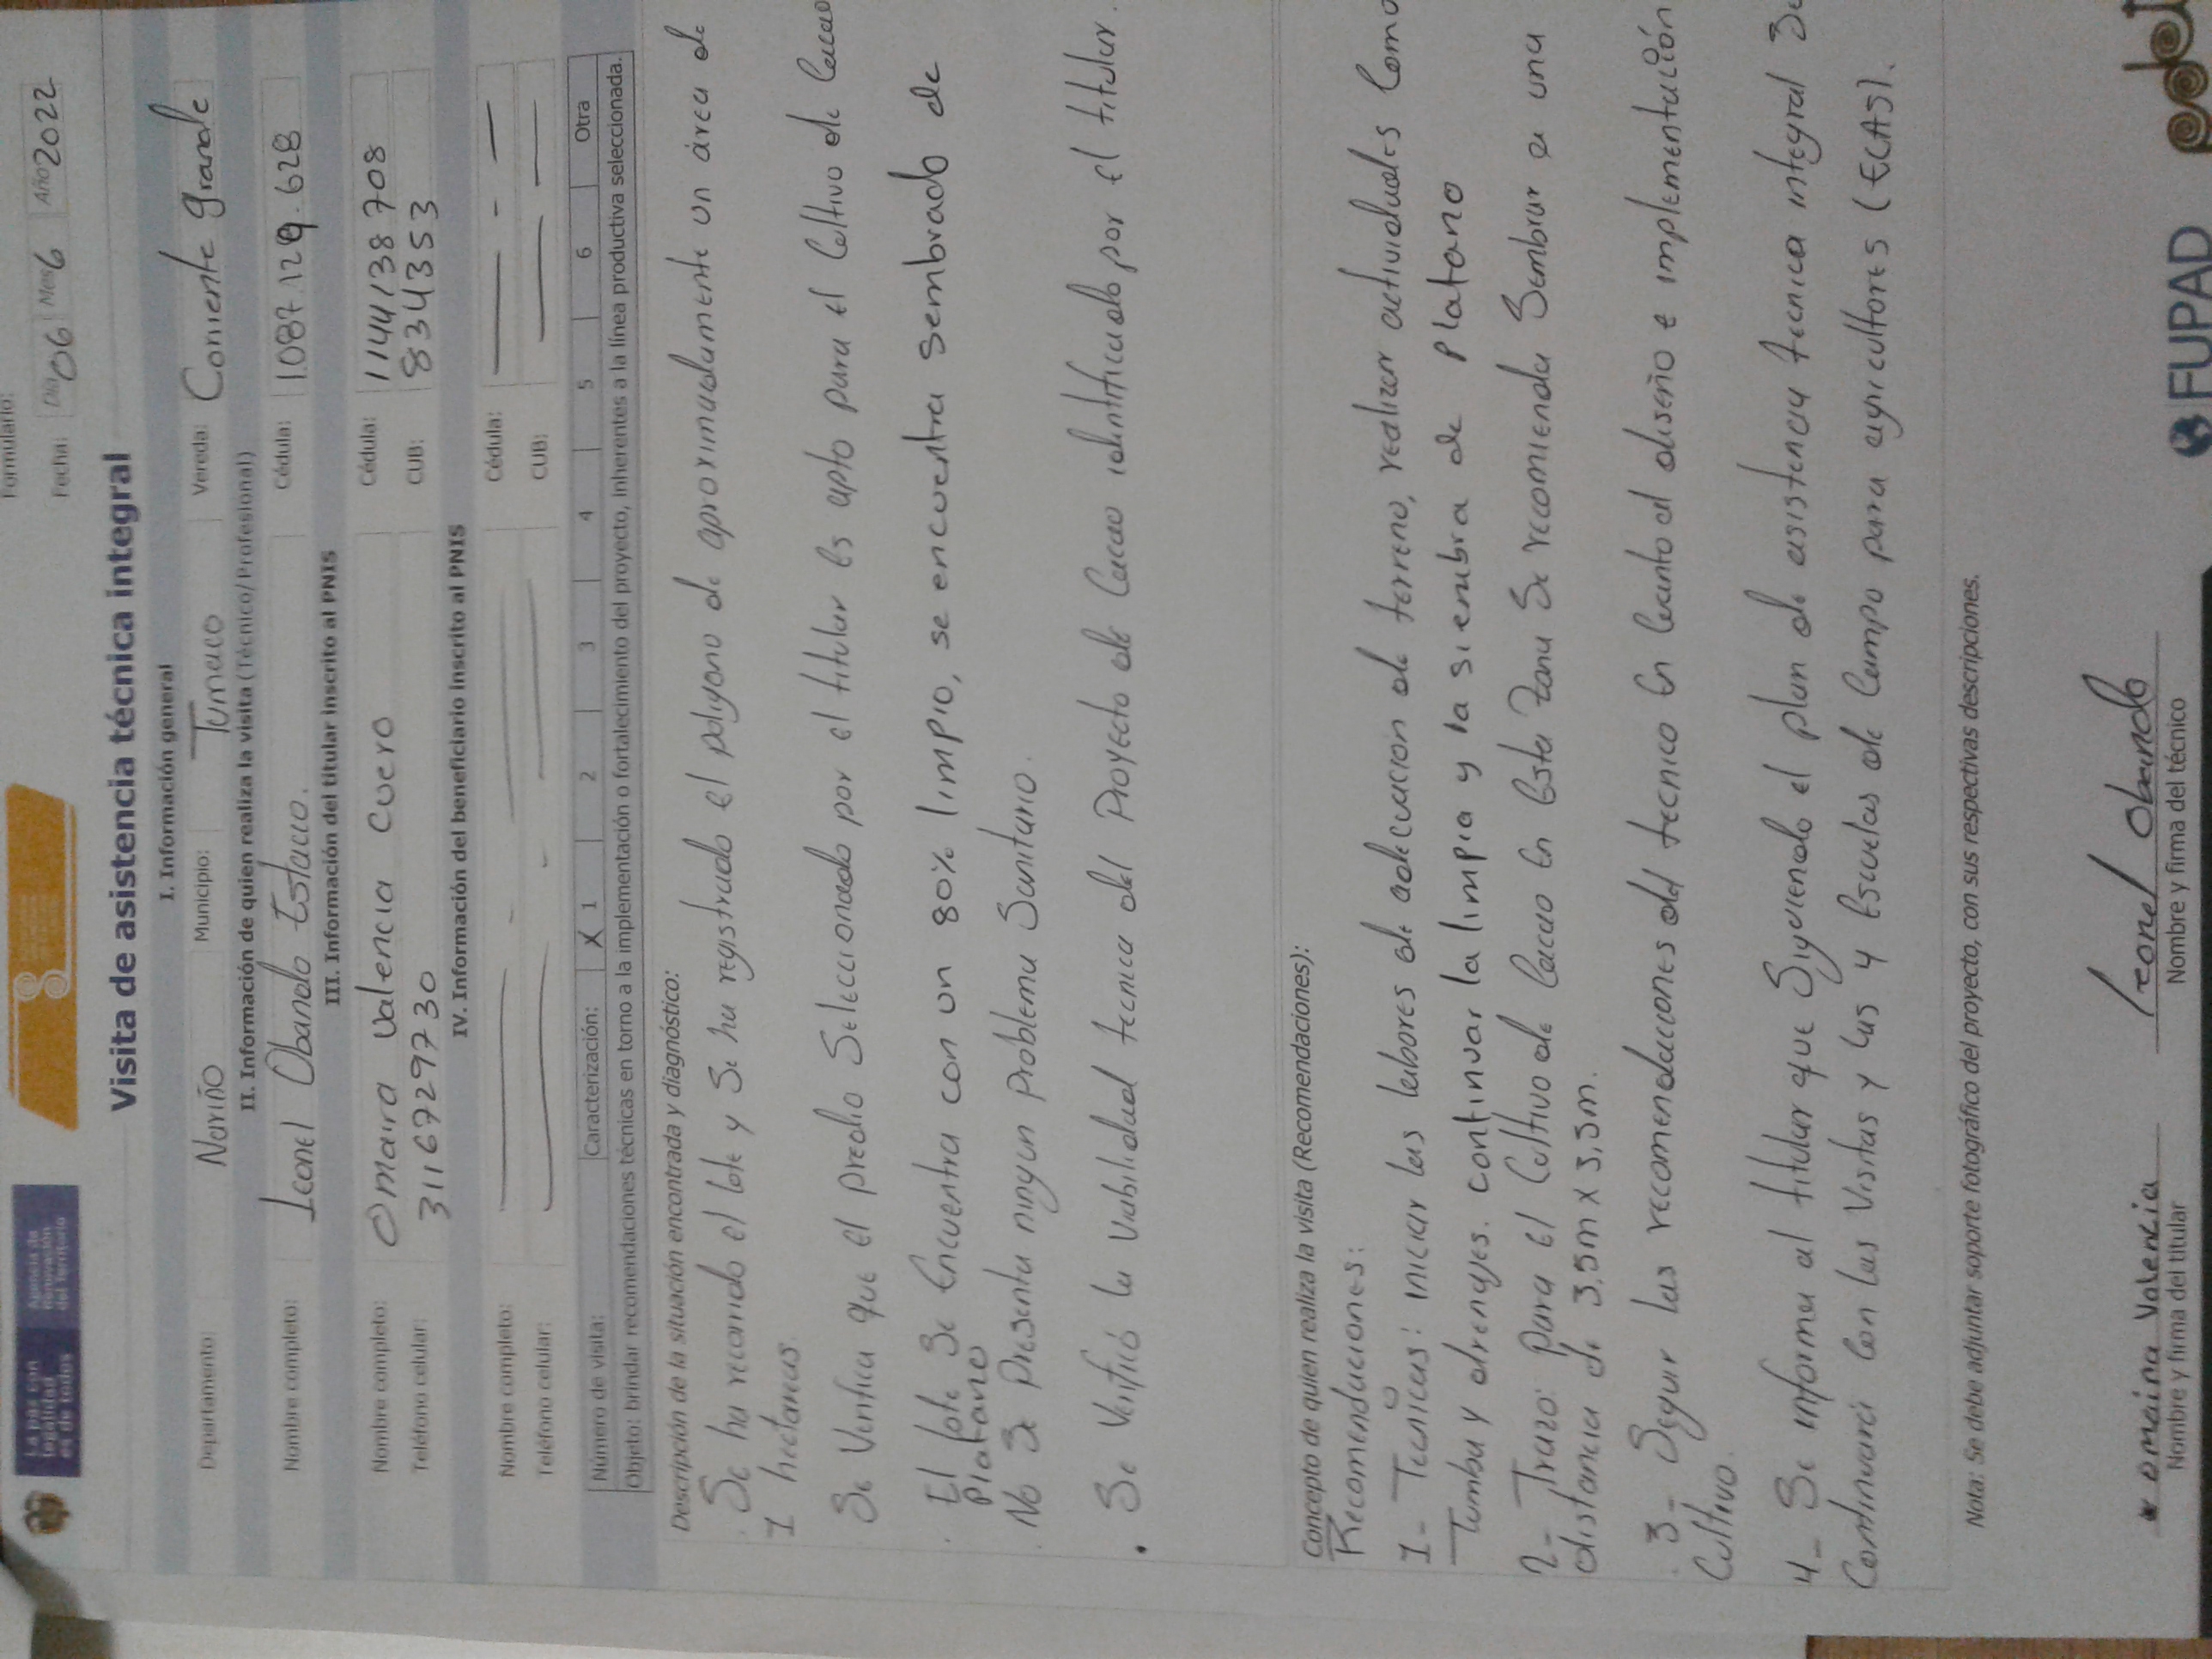 Formulario:
Fecha: Día 06 Mes 6 Año 2022
La paz con legalidad es de todos
Agencia de Renovación del Territorio
Visita de asistencia técnica integral
I. Información general
Departamento: Nariño Municipio: Tumaco Vereda: Corriente grande
II. Información de quien realiza la visita (Técnico/Profesional)
Nombre completo: Leonel Obando Estacio. Cédula: 1.087.129.628
III. Información del titular inscrito al PNIS
Nombre completo: Omaira Valencia Cuero Cédula: 1144138708
Teléfono celular: 3116729730 CUB: 8343353
IV. Información del beneficiario inscrito al PNIS
Nombre completo: Cédula:
Teléfono celular: CUB:
Número de visita: Caracterización: X 1 2 3 4 5 6 Otra
Objeto: brindar recomendaciones técnicas en torno a la implementación o fortalecimiento del proyecto, inherentes a la línea productiva seleccionada.
Descripción de la situación encontrada y diagnóstico:
. Se ha recorrido el lote y Se ha registrado el poligono de aproximadamente un área de
1 hectareas.
Se Verifica que el predio Seleccionado por el titular es apto para el Cultivo de Cacao
. El lote Se Encuentra con un 80% limpio, se encuentra sembrado de
Platano
. No Se Presenta ningun problema Sanitario.
• Se Verificó la Viabilidad tecnica del Proyecto de Cacao identificado por el titular.
Concepto de quien realiza la visita (Recomendaciones):
Recomendaciones:
1- Tecnicas: iniciar las labores de adecuacion de terreno, realizar actividades Como
Tumba y drenajes. continuar la limpia y la siembra de platano
2- Trazo: para el Cultivo de Cacao en Esta Zona Se recomienda Sembrar a una
distancia de 3,5m x 3,5m.
. 3- Seguir las recomendaciones del tecnico en Cuanto al diseño e implementación
Cultivo.
4- Se informa al titular que Siguiendo el plan de asistencia tecnica integral Se
Continuará con las Visitas y las 4 Escuelas de Campo para agricultores (ECAS).
Nota: Se debe adjuntar soporte fotográfico del proyecto, con sus respectivas descripciones.
* omaira Valencia
Nombre y firma del titular
Leonel Obando
Nombre y firma del técnico
FUPAD